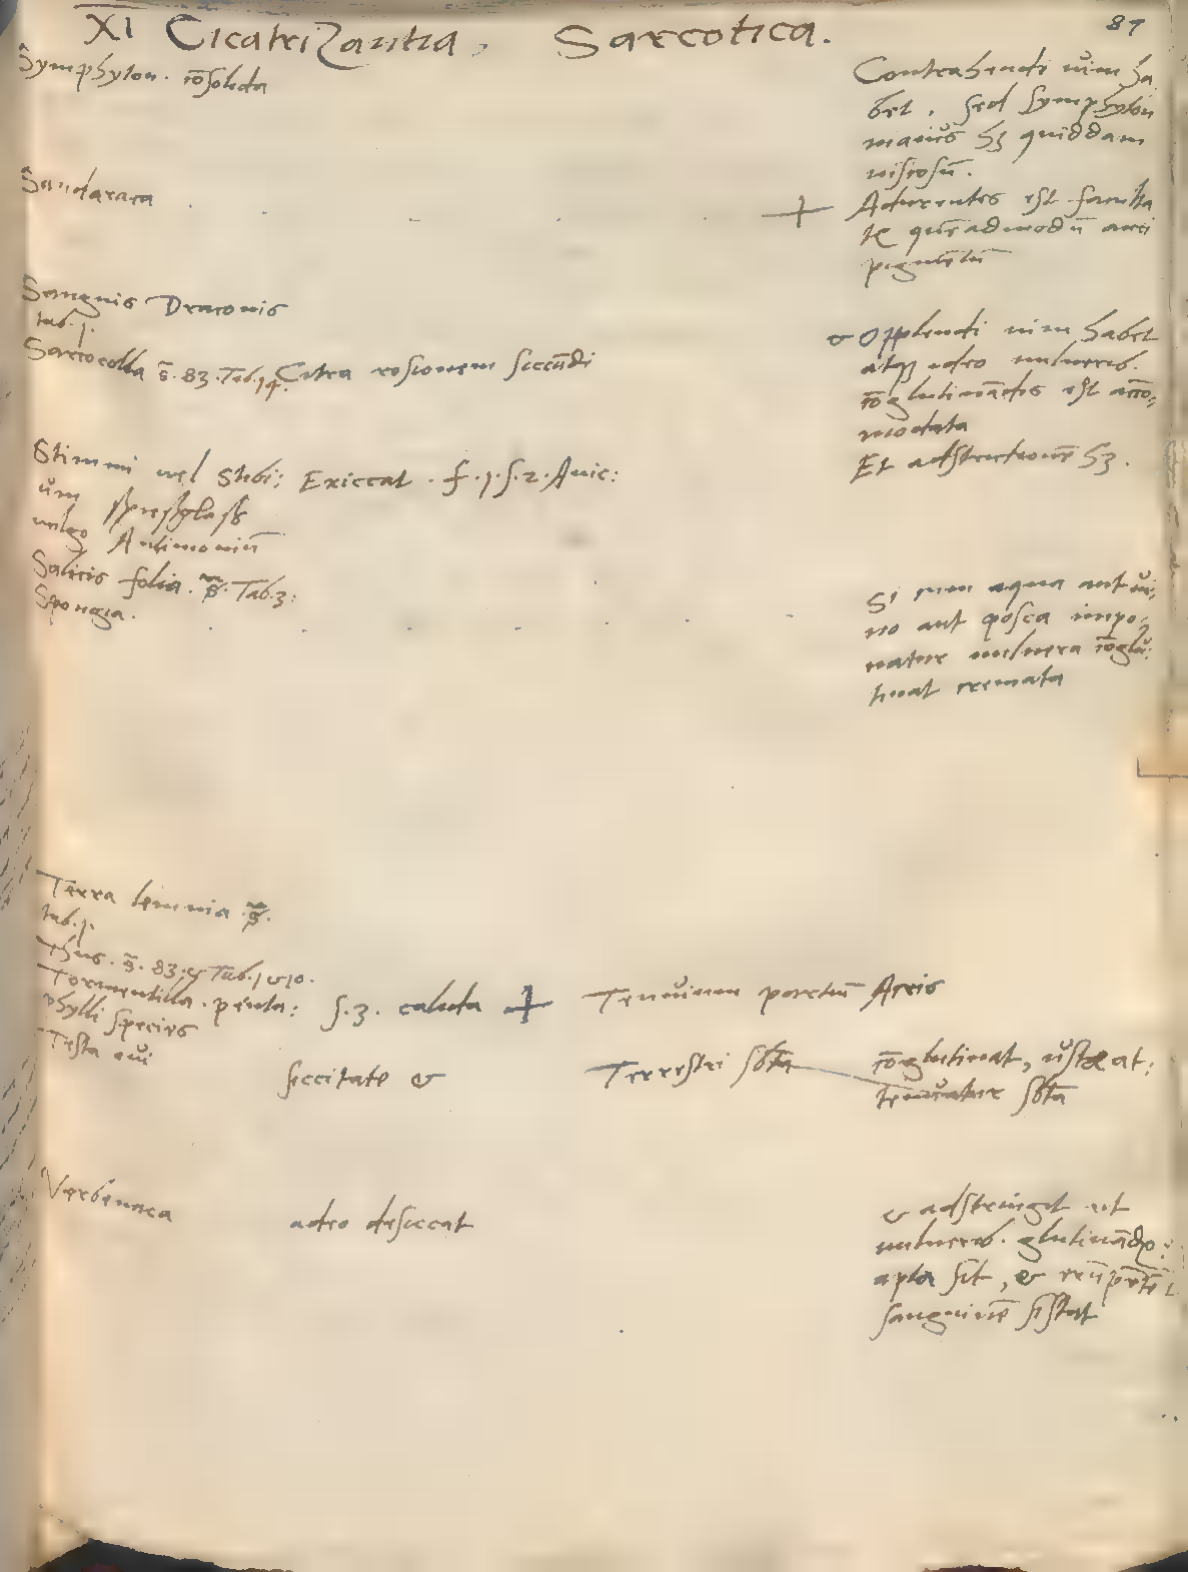 XI Cicatrizantia, Sarcotica.
87
Symphyton. cōsolida
Contrahendi uim ha
bet. sed Symphyton
maius hȝ quiddam
uiscosū.
Sandaraca
+ Adurentis est faculta
tis quēadmodū auri
pigmētū
Sanguis Draconis
tab. 1.
Sarcocolla s̄. 83. Tab. 14. Citra rosionem siccādi
& Opplendi uim habet
atq adeo uulnerib.
cōglutinādis est accō-
modata
Et adstrictionē hȝ.
Stimmi uel Stibi: Exiccat. f. 1. s. 2. Auic:
um spiesglasß
uulgo Antimoniū
Salicis folia. s̄. Tab. 3:
Spongia.
Si cum aqua aut ui-
no aut posca impo-
natur uulnera cōglu-
tinat cremata
Terra lemnia s̄.
tab. 1.
Thus. s̄. 83. & Tab. 1 & 10.
Tormentilla. penta: s. 3. calida + Tenuium partiū Acris
phylli species
Testa oui
siccitate & Terrestri sbta cōglutinat, usta at:
tenuatur sbta
Verbenaca adeo desiccat
& adstringit ut
uulnerib. glutinādis
apta sit, & erūpētē
sanguinē sistat